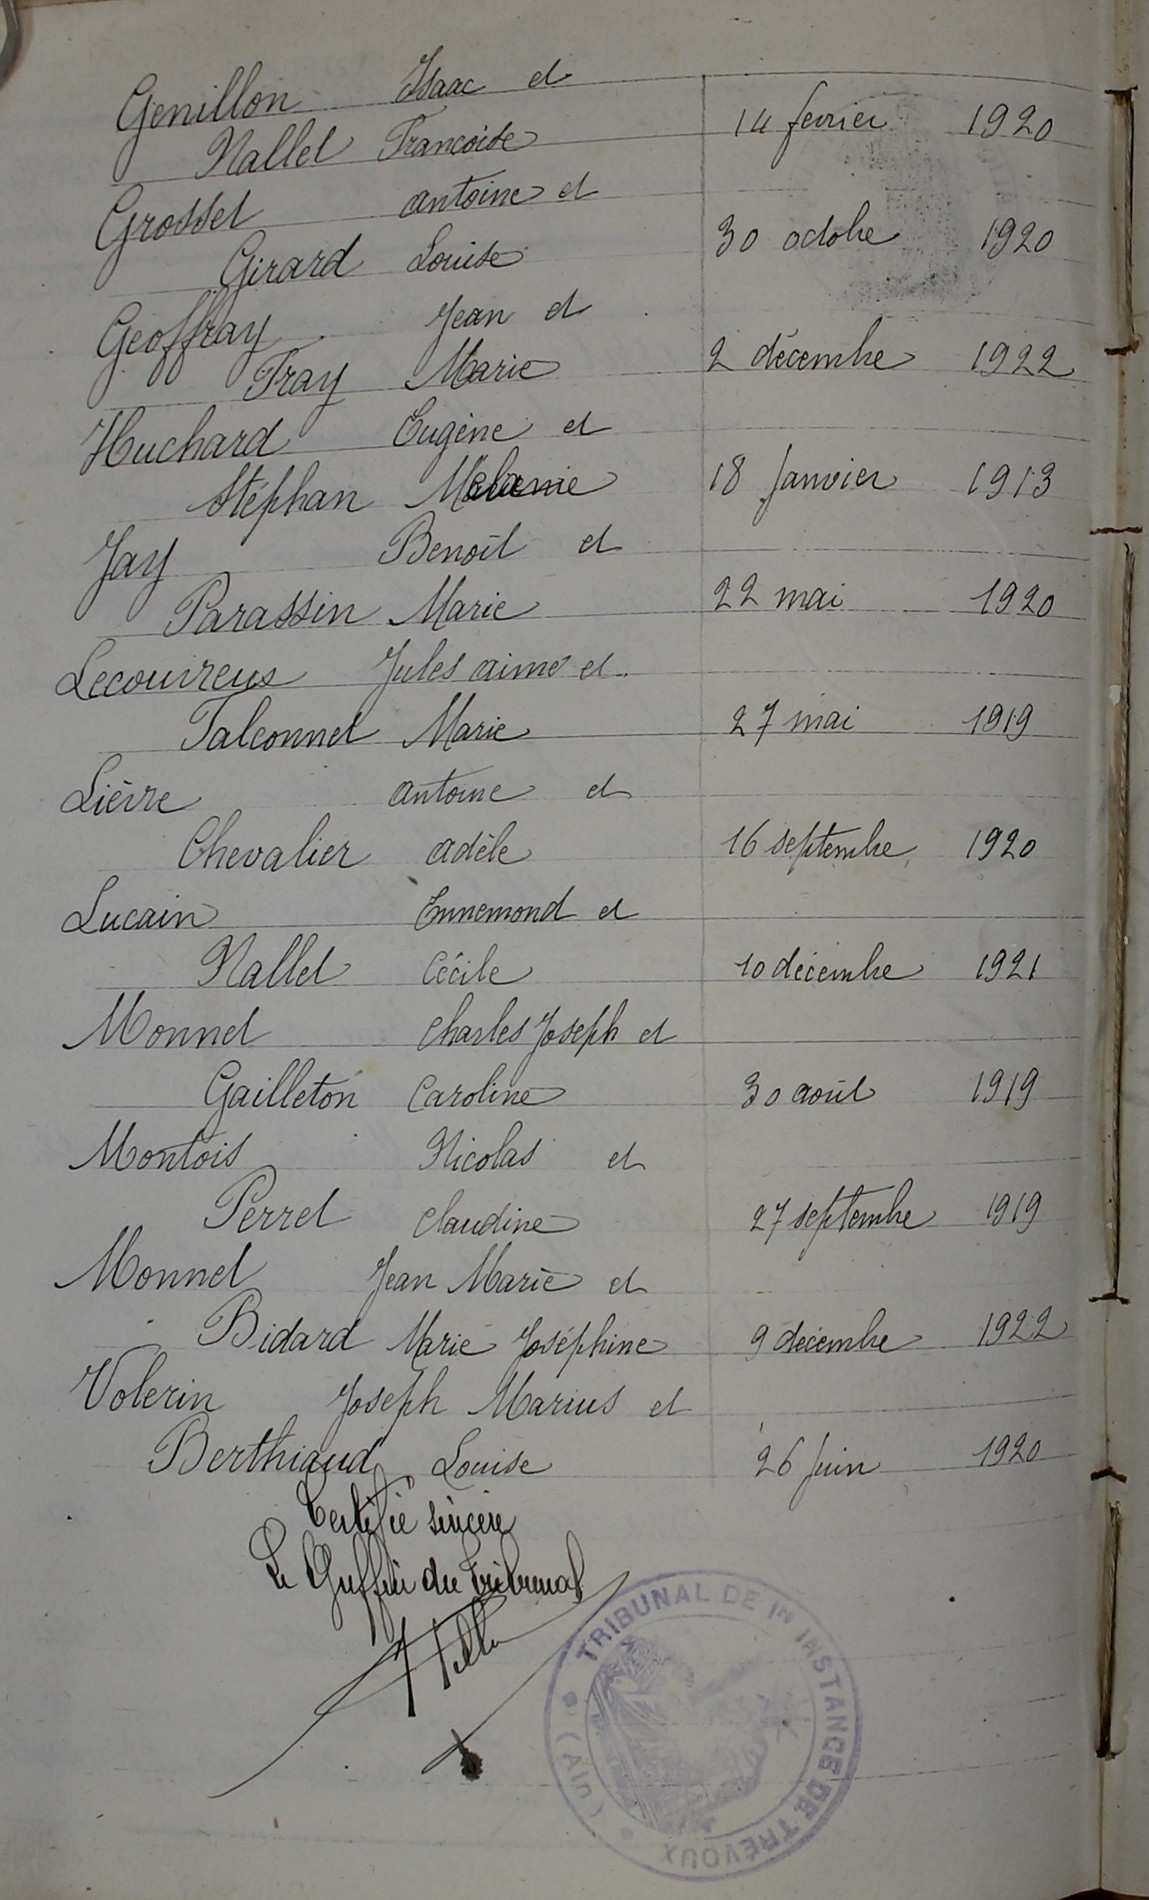 Genillon Isaac et
Nallet Francoise 14 fevrier 1920
Grosset antoine et
Girard Louise 30 octobre 1920
Geoffray Jean et
Fray Marie 2 décembre 1922
Huchard Eugène et
Stéphan Melanie 18 Janvier 1913
Jay Benoît et
Parassin Marie 22 mai 1920
Lecouvreux Jules aimé et
Falconnet Marie 27 mai 1919
Lièvre antoine et
Chevalier adèle 16 septembre 1920
Lucain Ennemond et
Nallet Cécile 10 décembre 1921
Monnet Charles Joseph et
Gailleton Caroline 30 août 1919
Montois Nicolas et
Perret Claudine 27 septembre 1919
Monnet Jean Marie et
Bidard Marie Joséphine 9 décembre 1922
Volerin Joseph Marius et
Berthiaud Louise 26 Juin 1920
Certifié sincère
Le Greffier du Tribunal
TRIBUNAL DE 1re INSTANCE DE TRÉVOUX
(Ain)